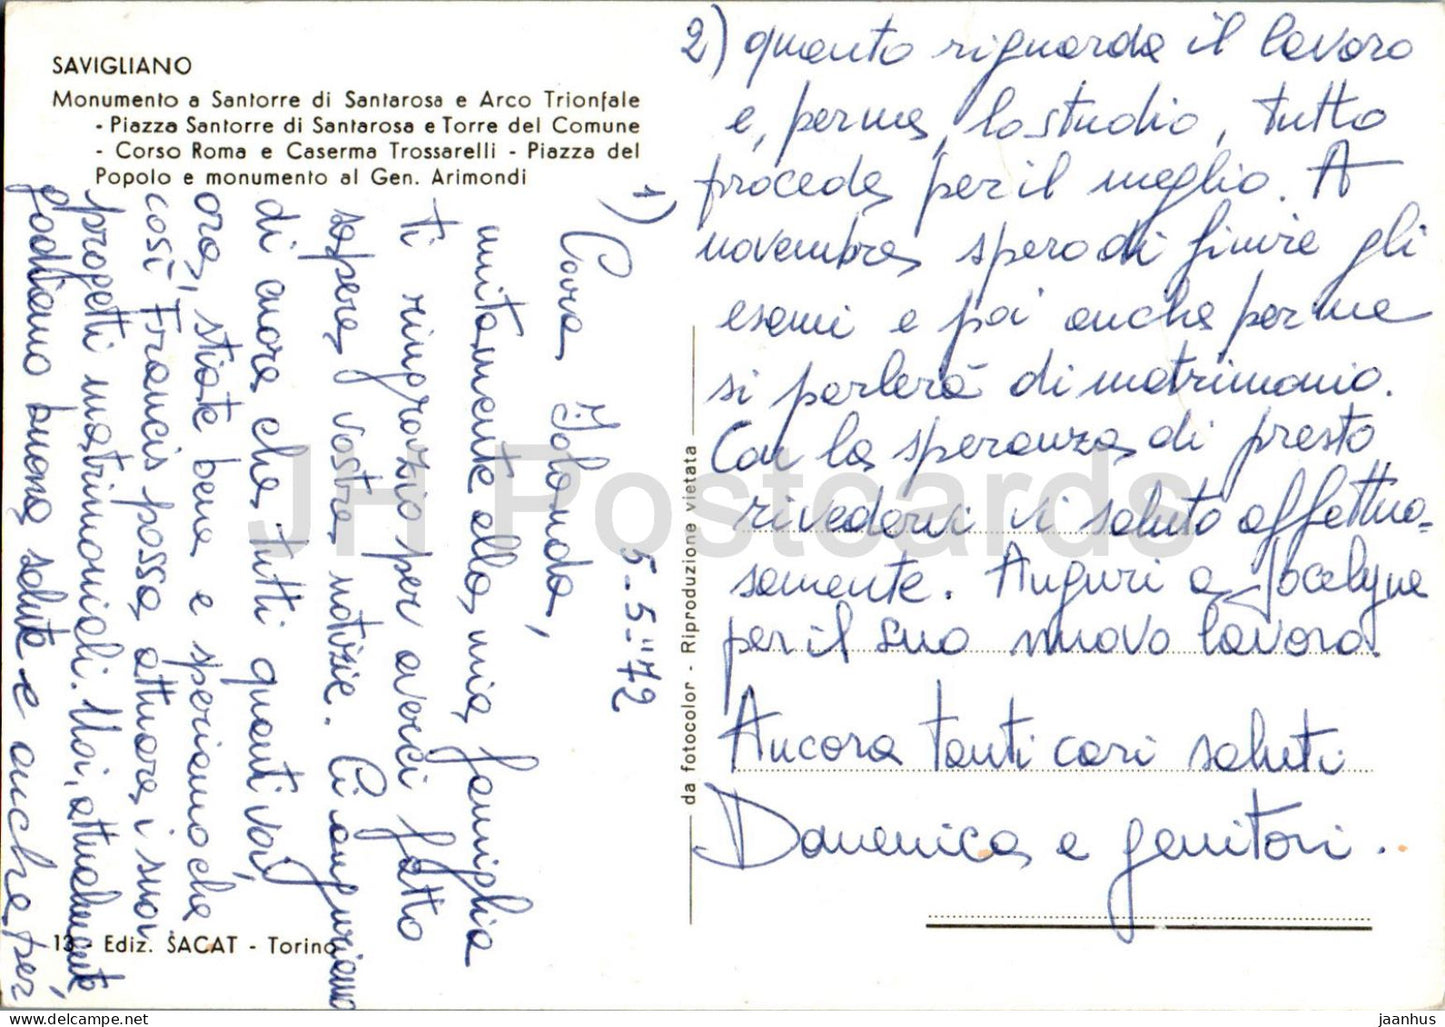 SAVIGLIANO
Monumento a Santorre di Santarosa e Arco Trionfale
- Piazza Santorre di Santarosa e Torre del Comune
- Corso Roma e Caserma Trossarelli - Piazza del
Popolo e monumento al Gen. Arimondi
5-5-'72
1) Cara Jolanda,
unitamente alla mia famiglia
ti ringrazio per averci fatto
sapere vostre notizie. Ci auguriamo
di cuore che tutti quanti voi,
ora, stiate bene e speriamo che
così Francis possa attuare i suoi
progetti matrimoniali. Noi, attualmente,
godiamo buona salute e anche per
2) quanto riguarda il lavoro
e, per me, lo studio, tutto
procede per il meglio. A
novembre spero di finire gli
esami e poi anche per me
si parlerà di matrimonio.
Con la speranza di presto
rivedervi vi saluto affettuo-
samente. Auguri a Jocelyne
per il suo nuovo lavoro.
Ancora tanti cari saluti
Domenica e genitori.
da fotocolor - Riproduzione vietata
13 - Ediz. SACAT - Torino
JH Postcards
jaanhus © HipPostcard.com